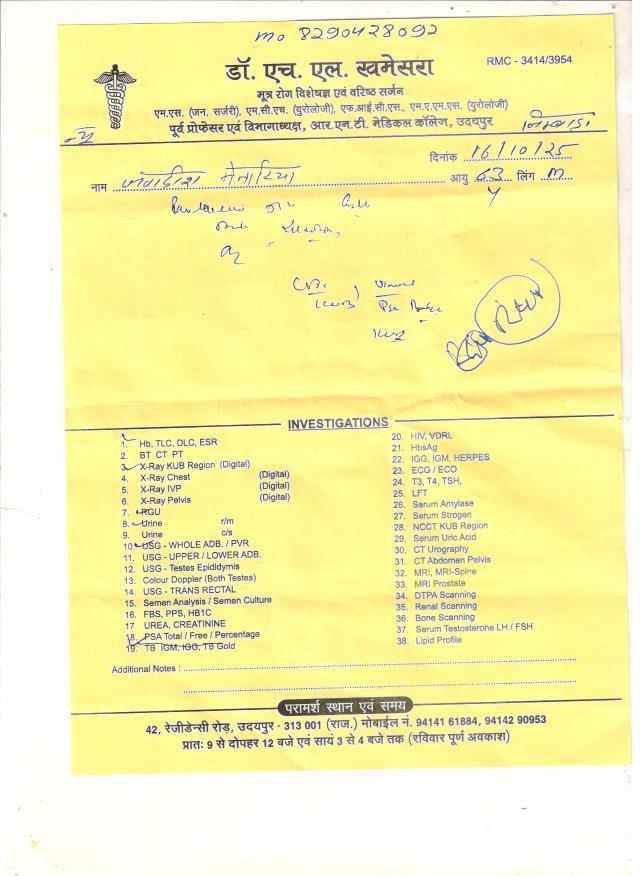 mo 8290428092
डॉ. एच. एल. खमेसरा
RMC - 3414/3954
मूत्र रोग विशेषज्ञ एवं वरिष्ठ सर्जन
एम.एस. (जन. सर्जरी), एम.सी.एच. (युरोलोजी), एफ.आई.सी.एस., एम.ए.एम.एस. (युरोलोजी)
पूर्व प्रोफेसर एवं विभागाध्यक्ष, आर.एन.टी. मेडिकल कॉलेज, उदयपुर
दिनांक 16/10/25
नाम जगदीश मेनारिया आयु 63 लिंग M
y
INVESTIGATIONS
1. Hb, TLC, DLC, ESR
2. BT CT PT
3. X-Ray KUB Region (Digital)
4. X-Ray Chest (Digital)
5. X-Ray IVP (Digital)
6. X-Ray Pelvis (Digital)
7. RGU
8. Urine r/m
9. Urine c/s
10. USG - WHOLE ADB. / PVR
11. USG - UPPER / LOWER ADB.
12. USG - Testes Epididymis
13. Colour Doppler (Both Testes)
14. USG - TRANS RECTAL
15. Semen Analysis / Semen Culture
16. FBS, PPS, HB1C
17 UREA, CREATININE
18. PSA Total / Free / Percentage
19. TB IGM, IGG, TB Gold
20. HIV, VDRL
21. HbsAg
22. IGG, IGM, HERPES
23. ECG / ECO
24. T3, T4, TSH,
25. LFT
26. Serum Amylase
27. Serum Strogen
28. NCCT KUB Region
29. Serum Uric Acid
30. CT Urography
31. CT Abdomen Pelvis
32. MRI, MRI-Spine
33. MRI Prostate
34. DTPA Scanning
35. Renal Scanning
36. Bone Scanning
37. Serum Testosterone LH / FSH
38. Lipid Profile
Additional Notes :
परामर्श स्थान एवं समय
42, रेजीडेन्सी रोड़, उदयपुर - 313 001 (राज.) मोबाईल नं. 94141 61884, 94142 90953
प्रातः 9 से दोपहर 12 बजे एवं सायं 3 से 4 बजे तक (रविवार पूर्ण अवकाश)